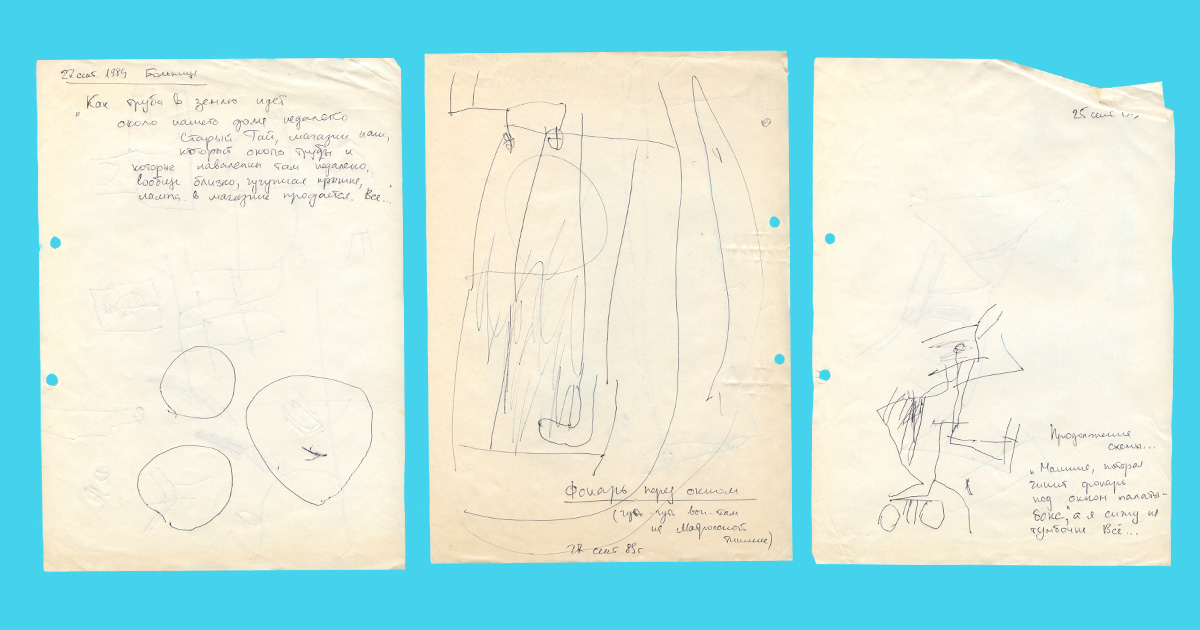 27 сент. 1989 Больница
"Как труба в землю идёт
около нашего дома недалеко
Старый Гай, магазин наш,
который около трубы и
которые навалены там недалеко,
вообще близко, чугунная
лампа в магазине продаётся. Всё...
Фонарь перед окном
(чуть-чуть вон-там
на Матросской
тишине)
27 сент 89г
25 сент
Продолжение
схемы...
"Машина, которая
чинит фонарь
под окном палаты-
бокс", а я сижу на
тумбочке. Всё...